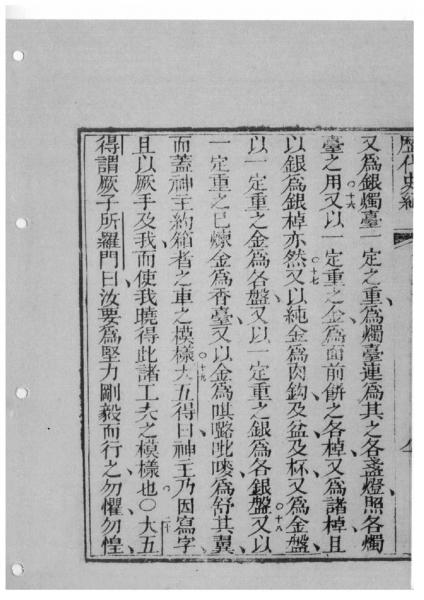 歷代史紀
又爲銀燭臺一定之重爲燭臺連爲其之各盞燈照各燭
臺之用○十六又以一定重之金爲面前餠之各棹又爲諸棹且
以銀爲銀棹亦然○十七又以純金爲肉鈎及盆及杯又爲金盤
以一定重之金爲各盤又以一定重之銀爲各銀盤○十八又以
一定重之已煉金爲香臺又以金爲𠵽𠺕呲㖿爲舒其翼
而蓋神主約箱者之車之模樣○十九大五得曰神主乃因寫字
且以厥手及我而使我曉得此諸工夫之模樣也○二十○大五
得謂厥子所羅門曰汝要爲堅力剛毅而行之勿懼勿惶